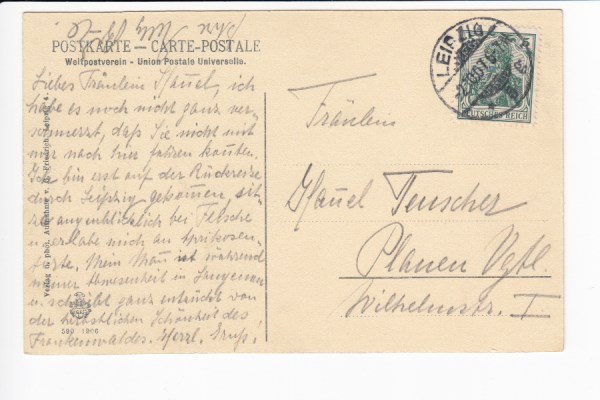 POSTKARTE — CARTE-POSTALE
Weltpostverein - Union Postale Universelle.
Liebes Fräulein Hauel, ich
habe es noch nicht ganz ver-
schmerzt, daß Sie nicht mit
mir nach hier fahren konnten.
bin erst auf der Rückreise
durch Leipzig gekommen sit-
ze augenblicklich bei Felsche
u. erlabe mich an Aprikosen-
Mein Mann ist während
meiner Abwesenheit in
u. schreibt ganz entzückt von
der herbstlichen Schönheit des
Frankenwaldes. Herzl. Gruß!
Verlag u. phot. Aufnahme v.
590 1906
LEIPZIG
DEUTSCHES REICH
Fräulein
Hauel Teuscher
Plauen Vgtl.
Wilhelmstr. I.